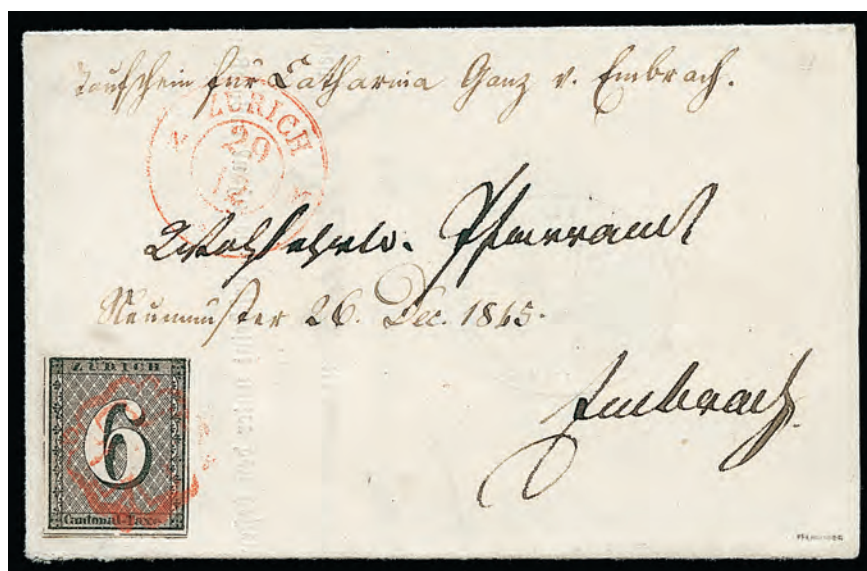 Taufschein für Catharina Ganz v. Embrach.
ZÜRICH
29
12
Wohlehrw. Pfarramt
Neumünster 26. Dec. 1845.
Embrach.
ZÜRICH
6
Cantonal-Taxe